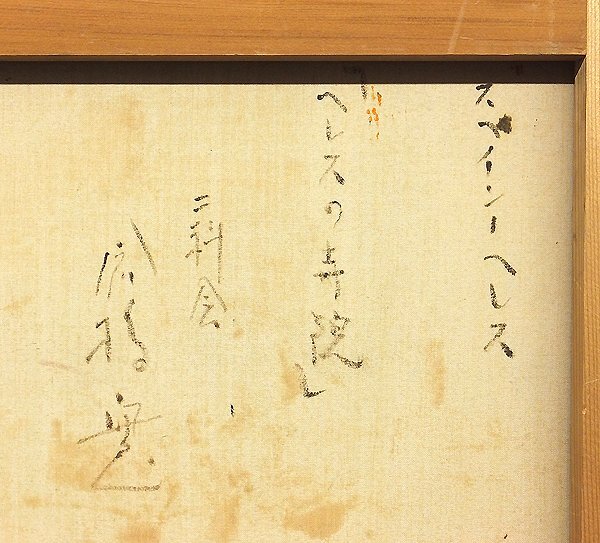 スペインーヘレス
「ヘレスの寺院」
二科会